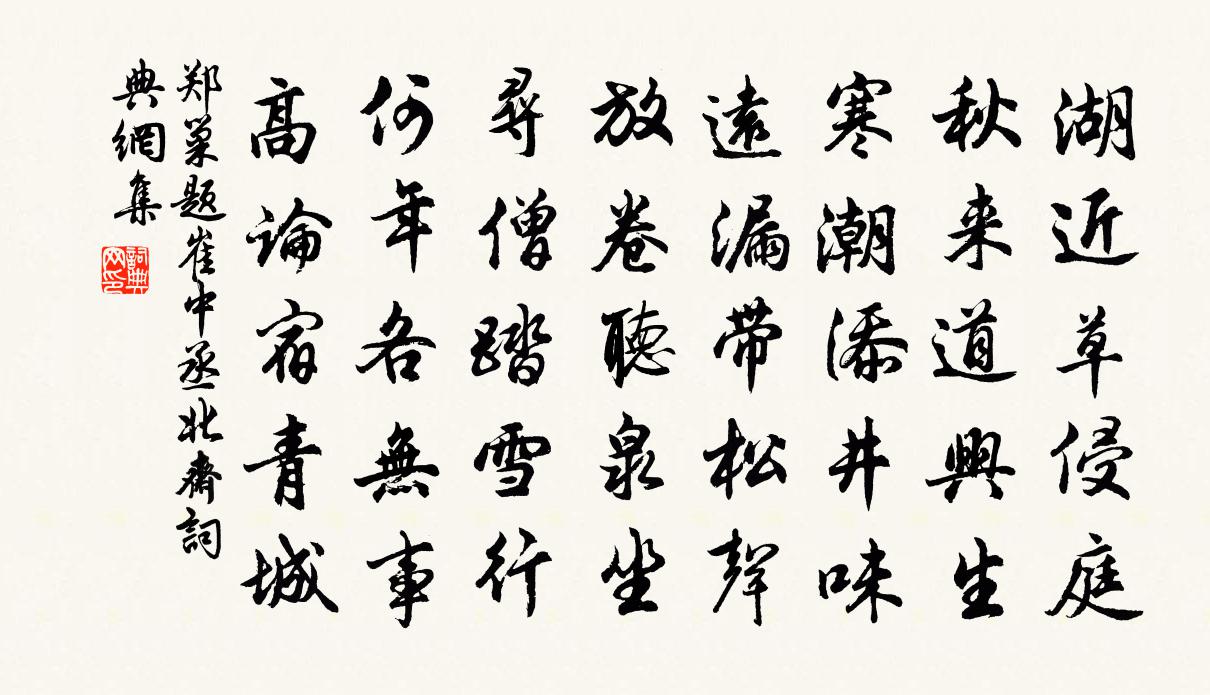 湖近草侵庭
秋来道興生
寒潮添井味
遠漏帶松聲
放卷聽泉坐
尋僧踏雪行
何年各無事
高論宿青城
郑巢题崔中丞北齋詞
典網集
詞典
网印